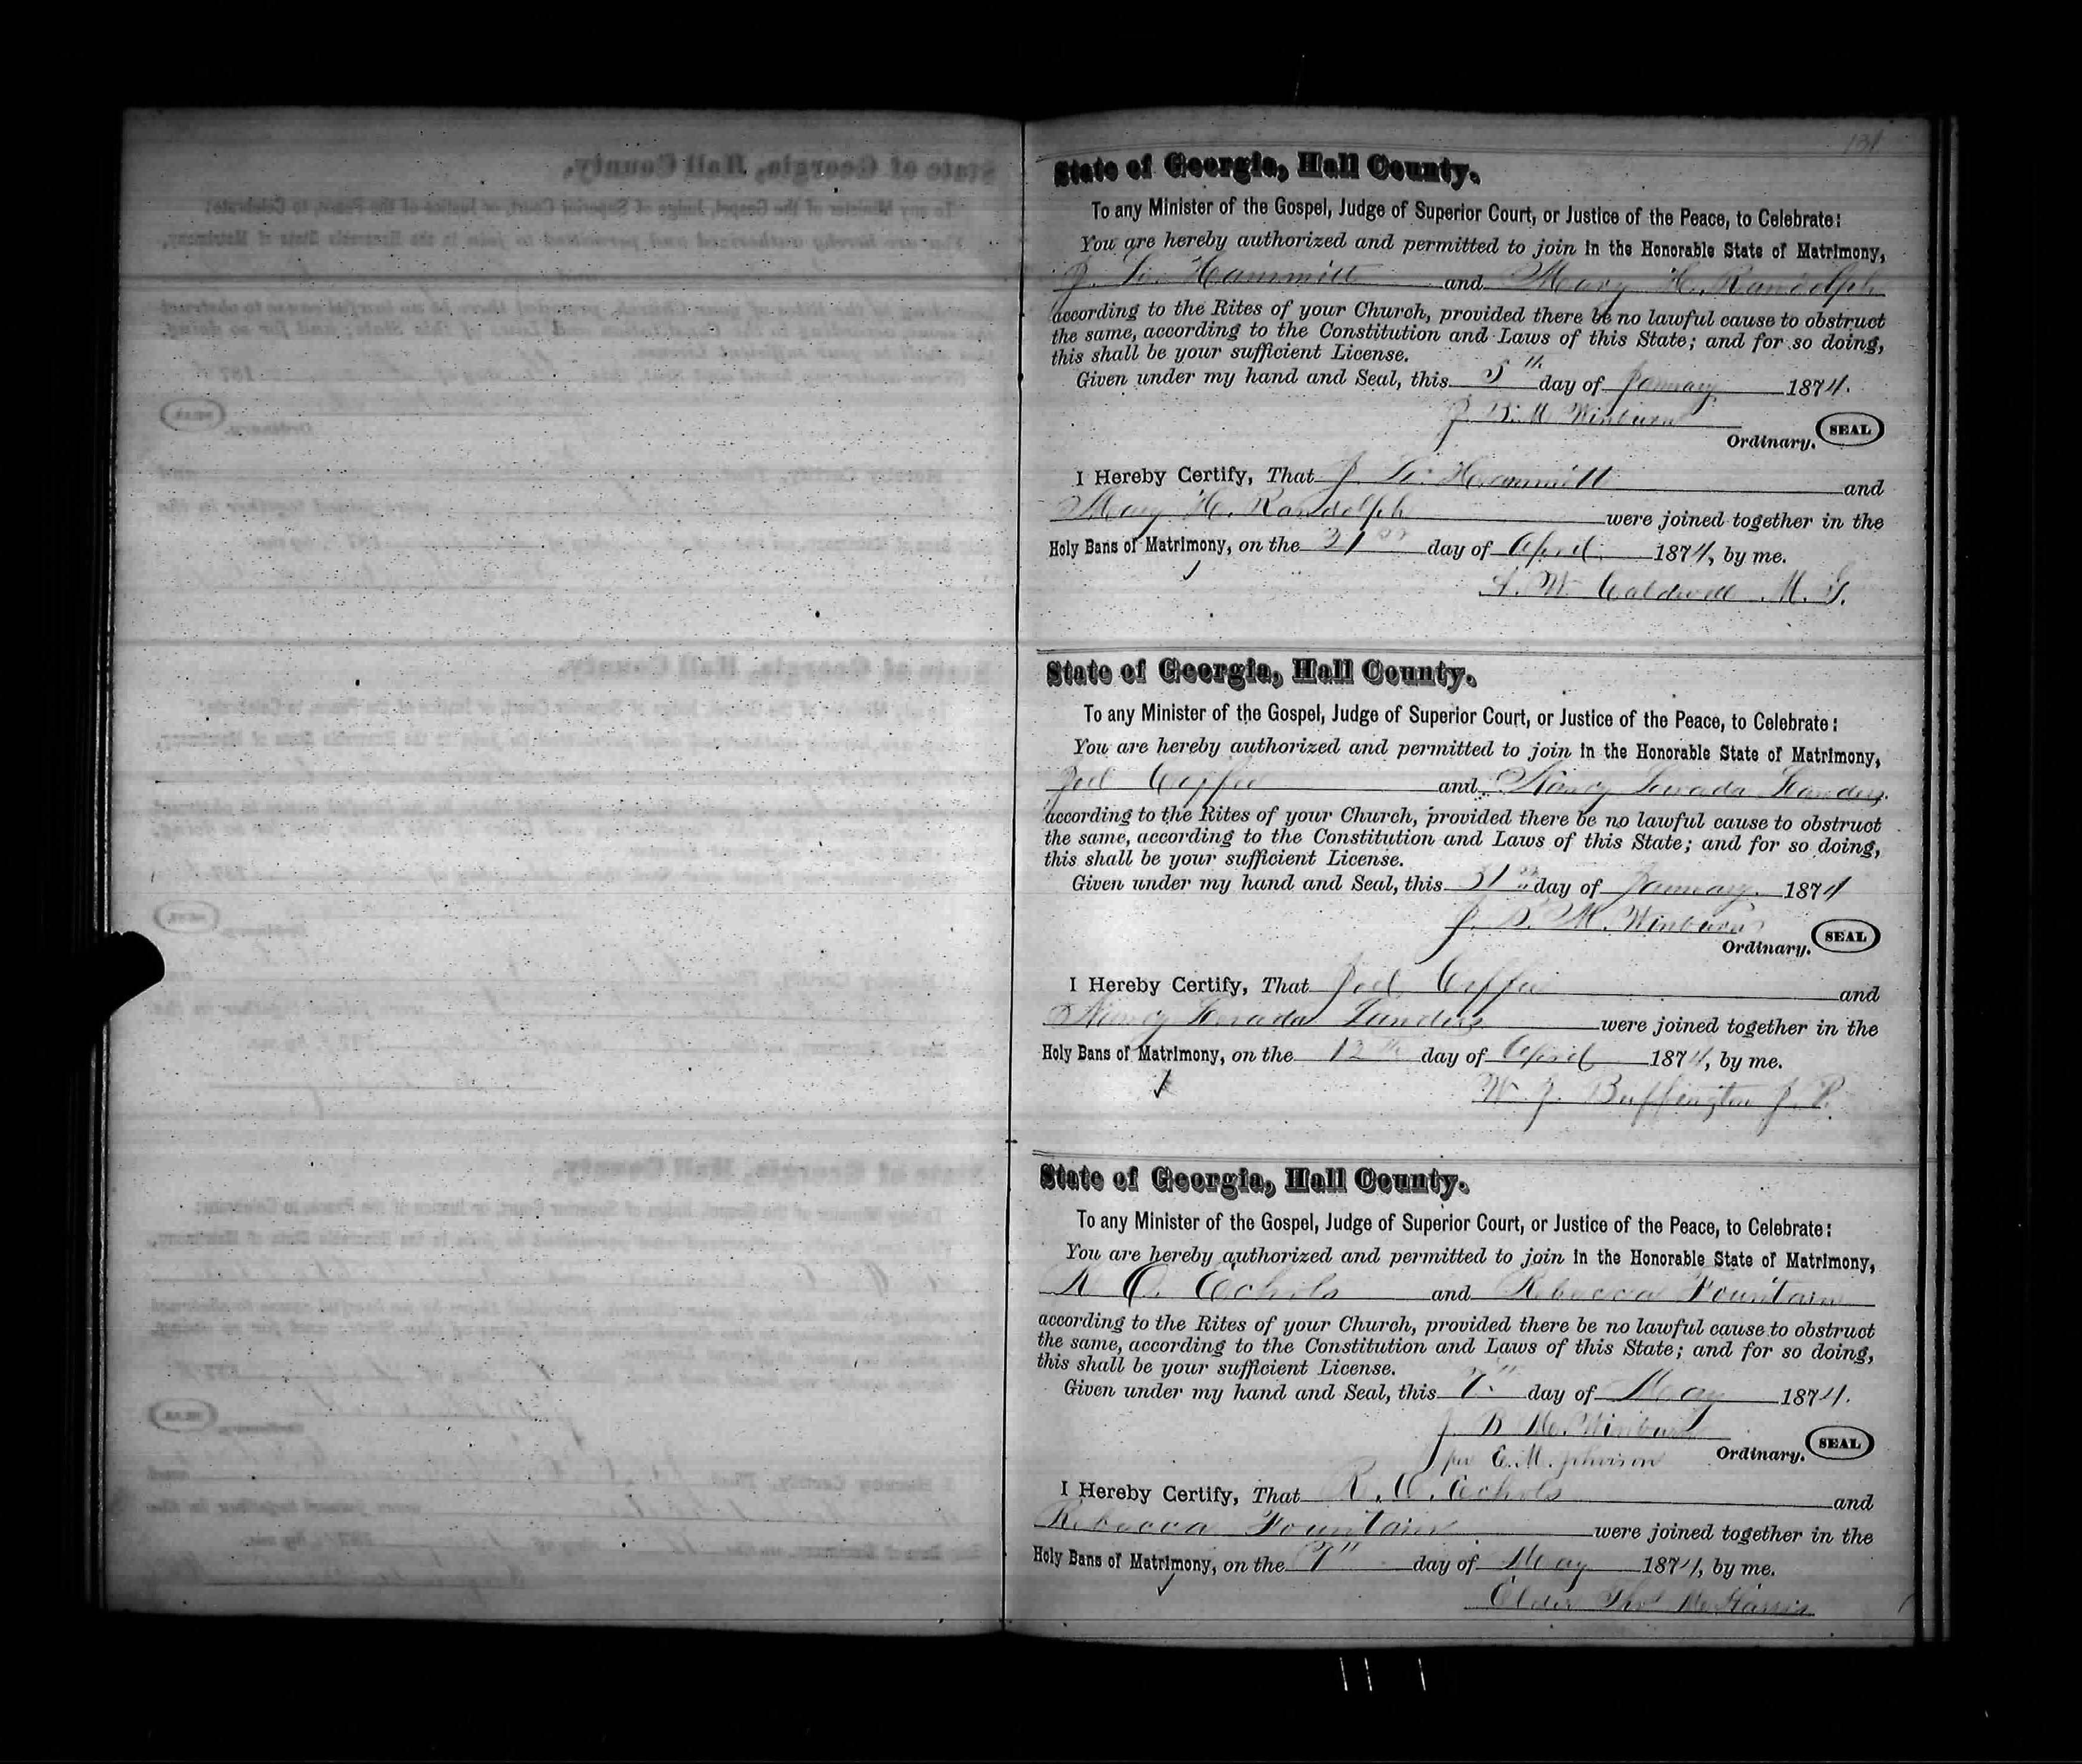 131
State of Georgia, Hall County.
To any Minister of the Gospel, Judge of Superior Court, or Justice of the Peace, to Celebrate:
You are hereby authorized and permitted to join in the Honorable State of Matrimony,
J. Hammitt and Mary H. Randolph
according to the Rites of your Church, provided there be no lawful cause to obstruct
the same, according to the Constitution and Laws of this State; and for so doing,
this shall be your sufficient License.
Given under my hand and Seal, this 5th day of January 1874.
J. B. M. Winburn
Ordinary. SEAL
I Hereby Certify, That J. Hammitt and
Mary H. Randolph were joined together in the
Holy Bans of Matrimony, on the day of April 1874, by me.
A. W. Caldwell M. G.
State of Georgia, Hall County.
To any Minister of the Gospel, Judge of Superior Court, or Justice of the Peace, to Celebrate:
You are hereby authorized and permitted to join in the Honorable State of Matrimony,
Joel and Nancy
according to the Rites of your Church, provided there be no lawful cause to obstruct
the same, according to the Constitution and Laws of this State; and for so doing,
this shall be your sufficient License.
Given under my hand and Seal, this 31st day of January 1874
J. B. M. Winburn
Ordinary. SEAL
I Hereby Certify, That Joel and
Nancy were joined together in the
Holy Bans of Matrimony, on the 12th day of April 1874, by me.
W. J. Buffington J. P.
State of Georgia, Hall County.
To any Minister of the Gospel, Judge of Superior Court, or Justice of the Peace, to Celebrate:
You are hereby authorized and permitted to join in the Honorable State of Matrimony,
R. O. Echols and Rebecca Fountain
according to the Rites of your Church, provided there be no lawful cause to obstruct
the same, according to the Constitution and Laws of this State; and for so doing,
this shall be your sufficient License.
Given under my hand and Seal, this 7" day of May 1874.
J. B. M. Winburn
per E. M. Johnson Ordinary. SEAL
I Hereby Certify, That R. O. Echols and
Rebecca Fountain were joined together in the
Holy Bans of Matrimony, on the 7" day of May 1874, by me.
Elder Thos M. Harris